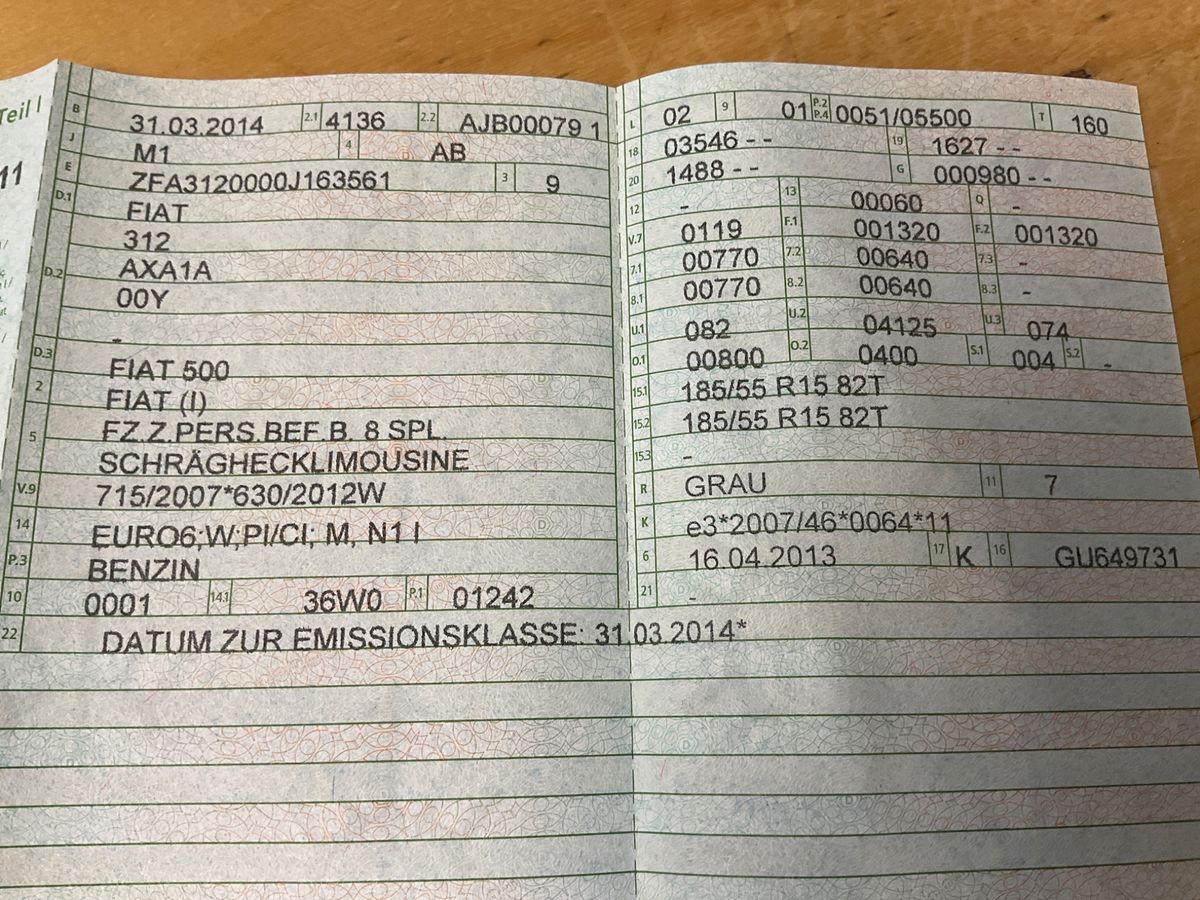 Teil I
11
B 31.03.2014 2.1 4136 2.2 AJB00079 1
J M1 4 AB
E ZFA3120000J163561 3 9
D.1 FIAT
312
D.2 AXA1A
00Y
-
D.3 FIAT 500
2 FIAT (I)
5 FZ.Z.PERS.BEF.B. 8 SPL.
SCHRÄGHECKLIMOUSINE
V.9 715/2007*630/2012W
14 EURO6;W;PI/CI; M, N1 I
P.3 BENZIN
10 0001 14.1 36W0 P.1 01242
22 DATUM ZUR EMISSIONSKLASSE: 31.03.2014*
L 02 9 01 P.2 P.4 0051/05500 T 160
18 03546 - - 19 1627 - -
20 1488 - - G 000980 - -
12 - 13 00060 Q -
V.7 0119 F.1 001320 F.2 001320
7.1 00770 7.2 00640 7.3 -
8.1 00770 8.2 00640 8.3 -
U.1 082 U.2 04125 U.3 074
O.1 00800 O.2 0400 S.1 004 S.2 -
15.1 185/55 R15 82T
15.2 185/55 R15 82T
15.3 -
R GRAU 11 7
K e3*2007/46*0064*11
6 16.04.2013 17 K 16 GU649731
21 -